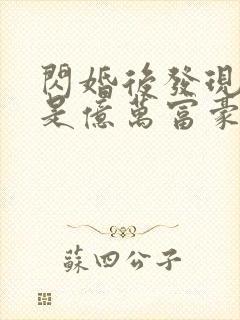 閃婚後發現
是億萬富豪
蘇四公子